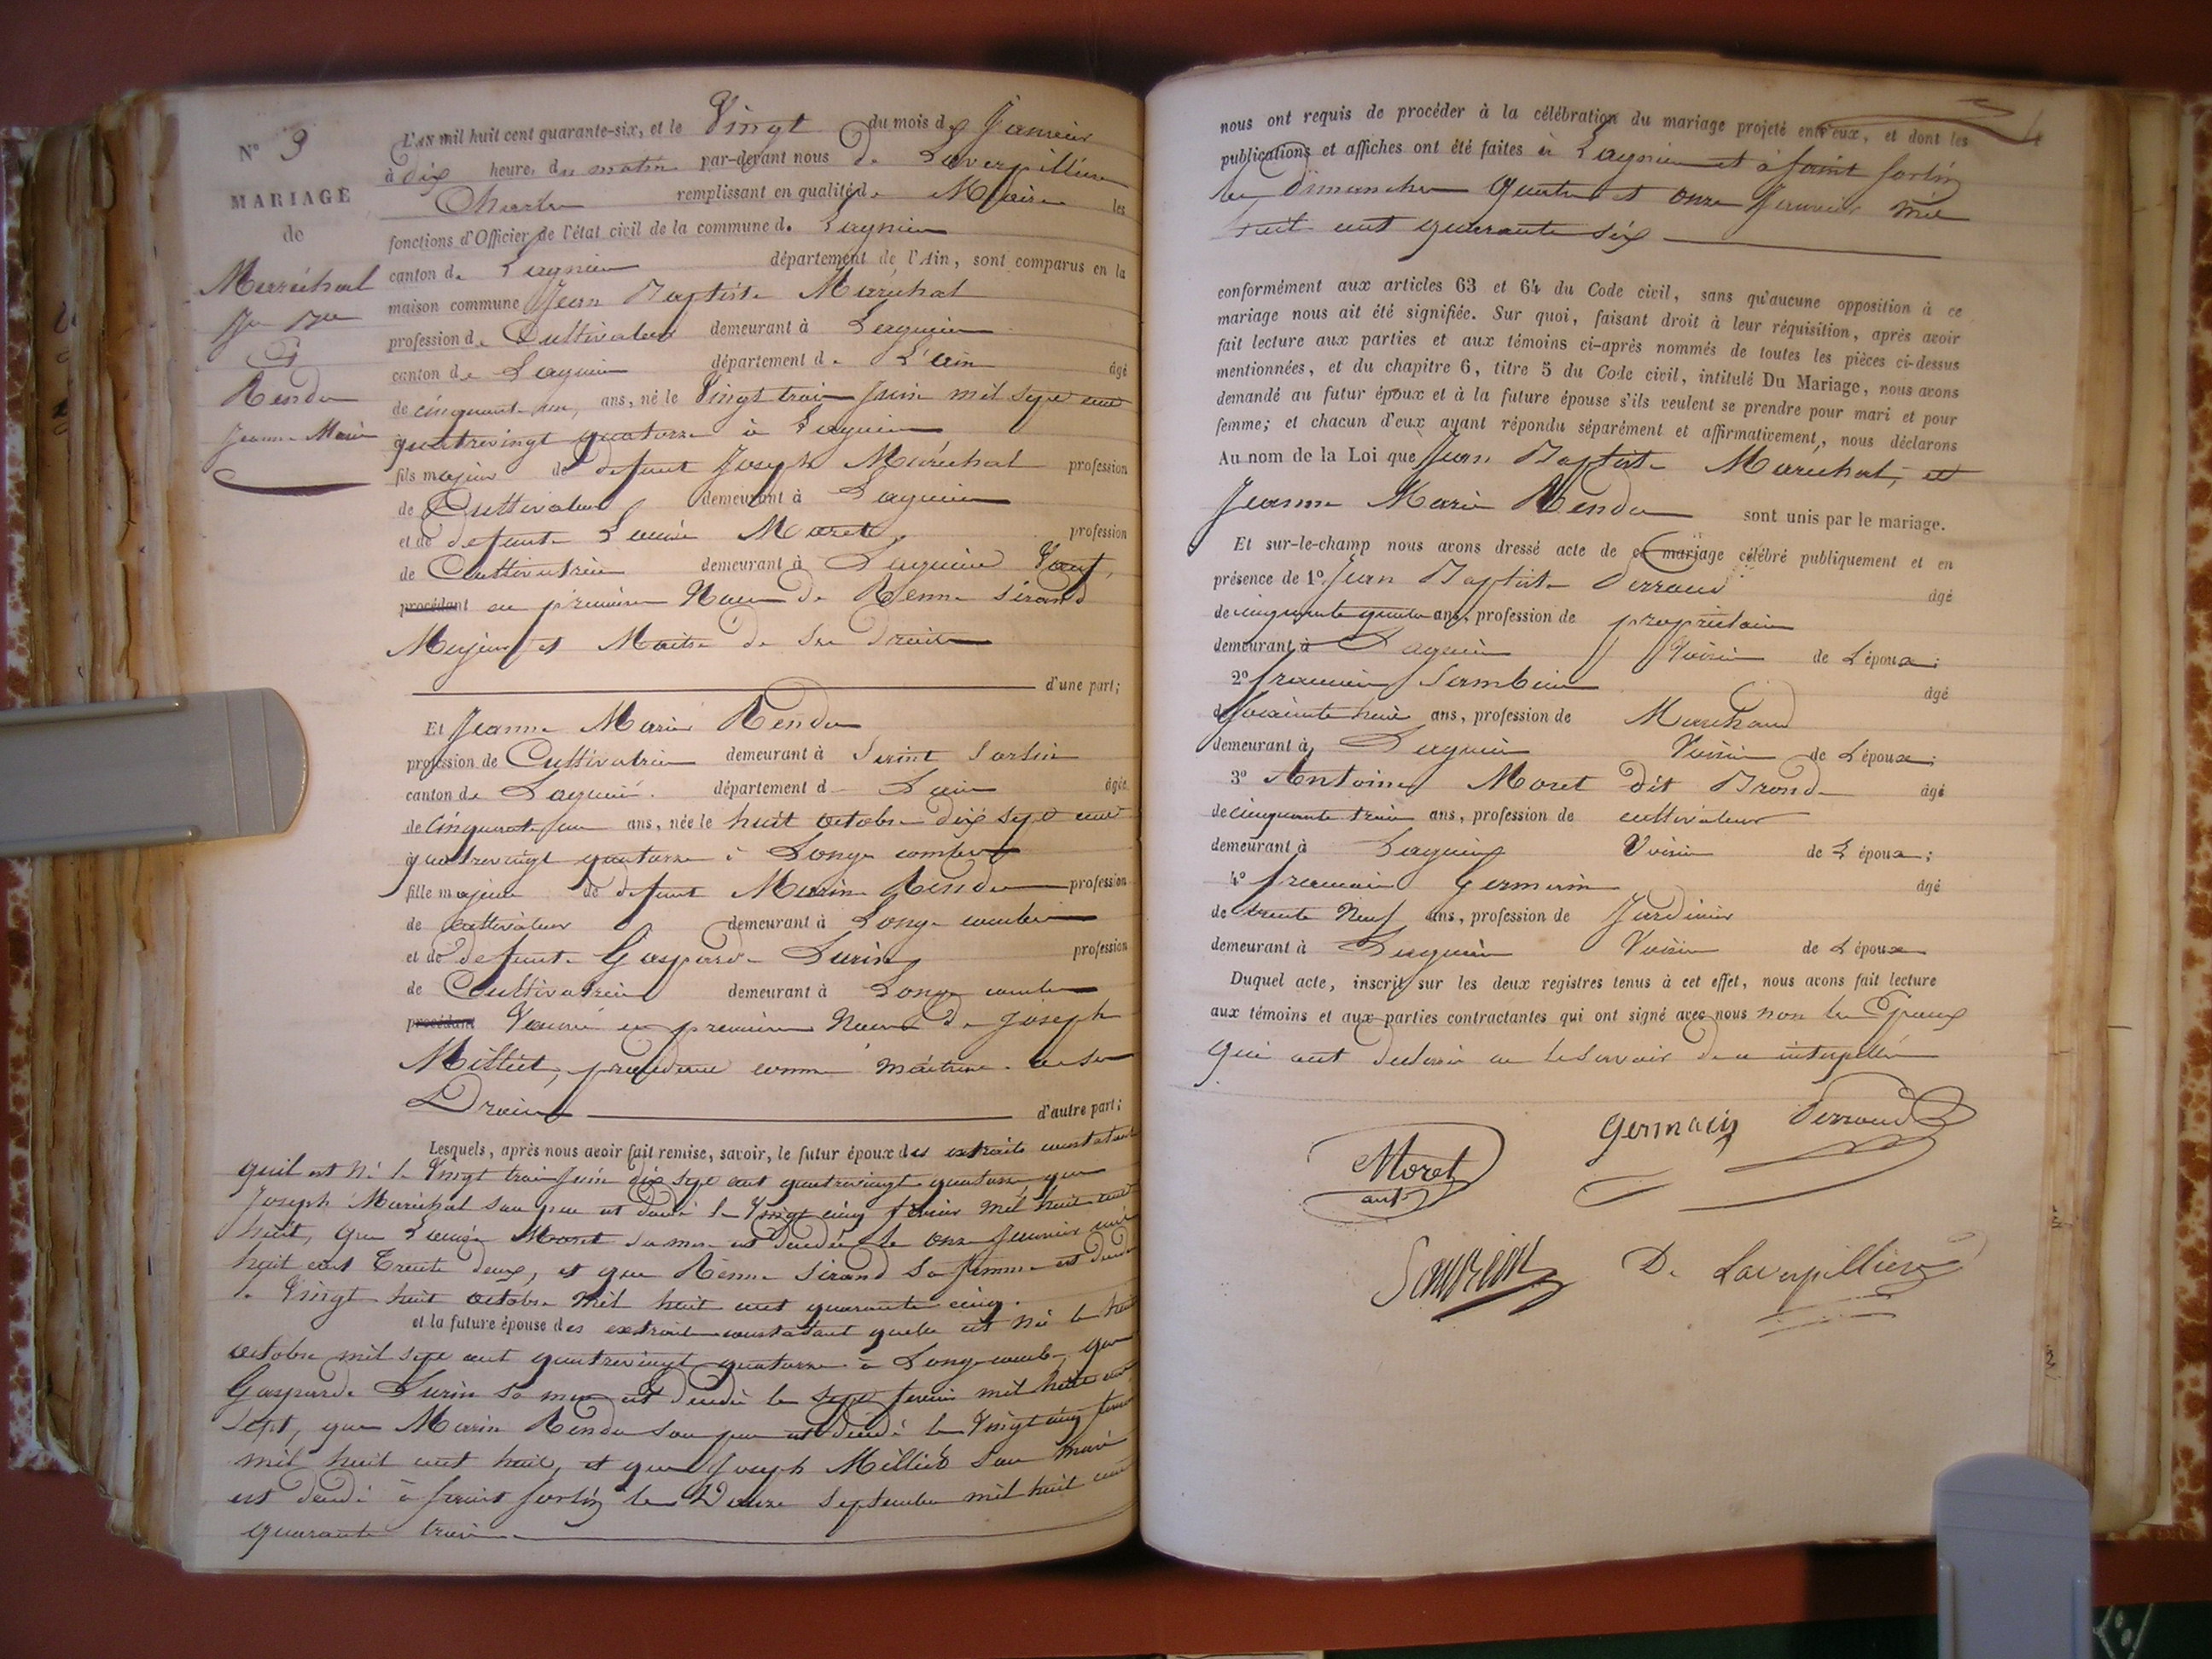 N° 9
MARIAGE
de
Maréchal
Jn Bte
Et
Rendu
Jeanne Marie
L'AN mil huit cent quarante-six, et le Vingt du mois de Janvier
à dix heure, du matin par-devant nous De Laverpillière
Charles remplissant en qualité de Maire les
fonctions d'Officier de l'état civil de la commune de Lagnieu
canton de Lagnieu département de l'Ain, sont comparus en la
maison commune Jean Baptiste Maréchal
profession de Cultivateur demeurant à Lagnieu
canton de Lagnieu département de L'ain âgé
de cinquante un, ans, né le Vingt trois Juin mil sept cent
quatrevingt quatorze à Lagnieu
fils majeur de défunt Joseph Maréchal profession
de Cultivateur demeurant à Lagnieu
et de défunte Louise Moret, profession
de Cultivatrice demeurant à Lagnieu Veuf,
procédant en première Noces de Renne Sirand
Majeur et Maitre de ses droits
d'une part;
Et Jeanne Marie Rendu
profession de Cultivatrice demeurant à Saint Sorlin
canton de Lagnieu. département d L'ain âgée
de Cinquante un ans, née le huit octobre dix sept cent
quatrevingt quatorze à Longecombe
fille majeure de défunt Marin Rendu profession
de cultivateur demeurant à Longecombe
et de défunte Gasparde Surin, profession
de Cultivatrice demeurant à Longecombe
procédant Veuve en première Noces de Joseph
Milliet, procédant comme maitresse de ses
Droits d'autre part;
Lesquels, après nous avoir fait remise, savoir, le futur époux des extraits constatant
quil est né le Vingt trois Juin dix sept cent quatrevingt quatorze, que
Joseph Maréchal son père est décédé le Vingt cinq février mil huit cent
huit, que Louise Moret sa mère est décédée le onze Janvier mil
huit cent trente deux, et que Renne Sirand sa femme est décédée
le Vingt huit octobre mil huit cent quarante cinq.
et la future épouse des extraits constatant quelle est née le huit
octobre mil sept cent quatrevingt quatorze à Longecombe, que
Gasparde Surin sa mère est décédée le sept février mil huit cent
sept, que Marin Rendu son père est décédé le Vingt cinq
mil huit cent huit, et que Joseph Milliet son mari
est décédé à Saint Sorlin le Douze septembre mil huit cent
quarante trois
nous ont requis de procéder à la célébration du mariage projeté entr'eux, et dont les
publications et affiches ont été faites à Lagnieu et à Saint Sorlin
les dimanches quatre et onze Janvier mil
huit cent quarante six
conformément aux articles 63 et 64 du Code civil, sans qu'aucune opposition à ce
mariage nous ait été signifiée. Sur quoi, faisant droit à leur réquisition, après avoir
fait lecture aux parties et aux témoins ci-après nommés de toutes les pièces ci-dessus
mentionnées, et du chapitre 6, titre 5 du Code civil, intitulé Du Mariage, nous avons
demandé au futur époux et à la future épouse s'ils veulent se prendre pour mari et pour
femme; et chacun d'eux ayant répondu séparément et affirmativement, nous déclarons
Au nom de la Loi que Jean Baptiste Maréchal, et
Jeanne Marie Rendu sont unis par le mariage.
Et sur-le-champ nous avons dressé acte de ce mariage célébré publiquement et en
présence de 1° Jean Baptiste Perraud âgé
de cinquante quatre ans, profession de propriétaire
demeurant à Lagnieu Voisin de L'époux;
2° Sambin âgé
de soixante huit ans, profession de Marchand
demeurant à Lagnieu Voisin de L'époux;
3° Antoine Moret dit Brond âgé
de cinquante trois ans, profession de cultivateur
demeurant à Lagnieu Voisin de L'époux;
4° Germain âgé
de trente Neuf ans, profession de Jardinier
demeurant à Lagnieu Voisin de L'époux
Duquel acte, inscrit sur les deux registres tenus à cet effet, nous avons fait lecture
aux témoins et aux parties contractantes qui ont signé avec nous non les Epoux
qui ont déclaré ne le savoir de ce interpellés
germain Perraud
Moret
ant
Sambin De Laverpilliere